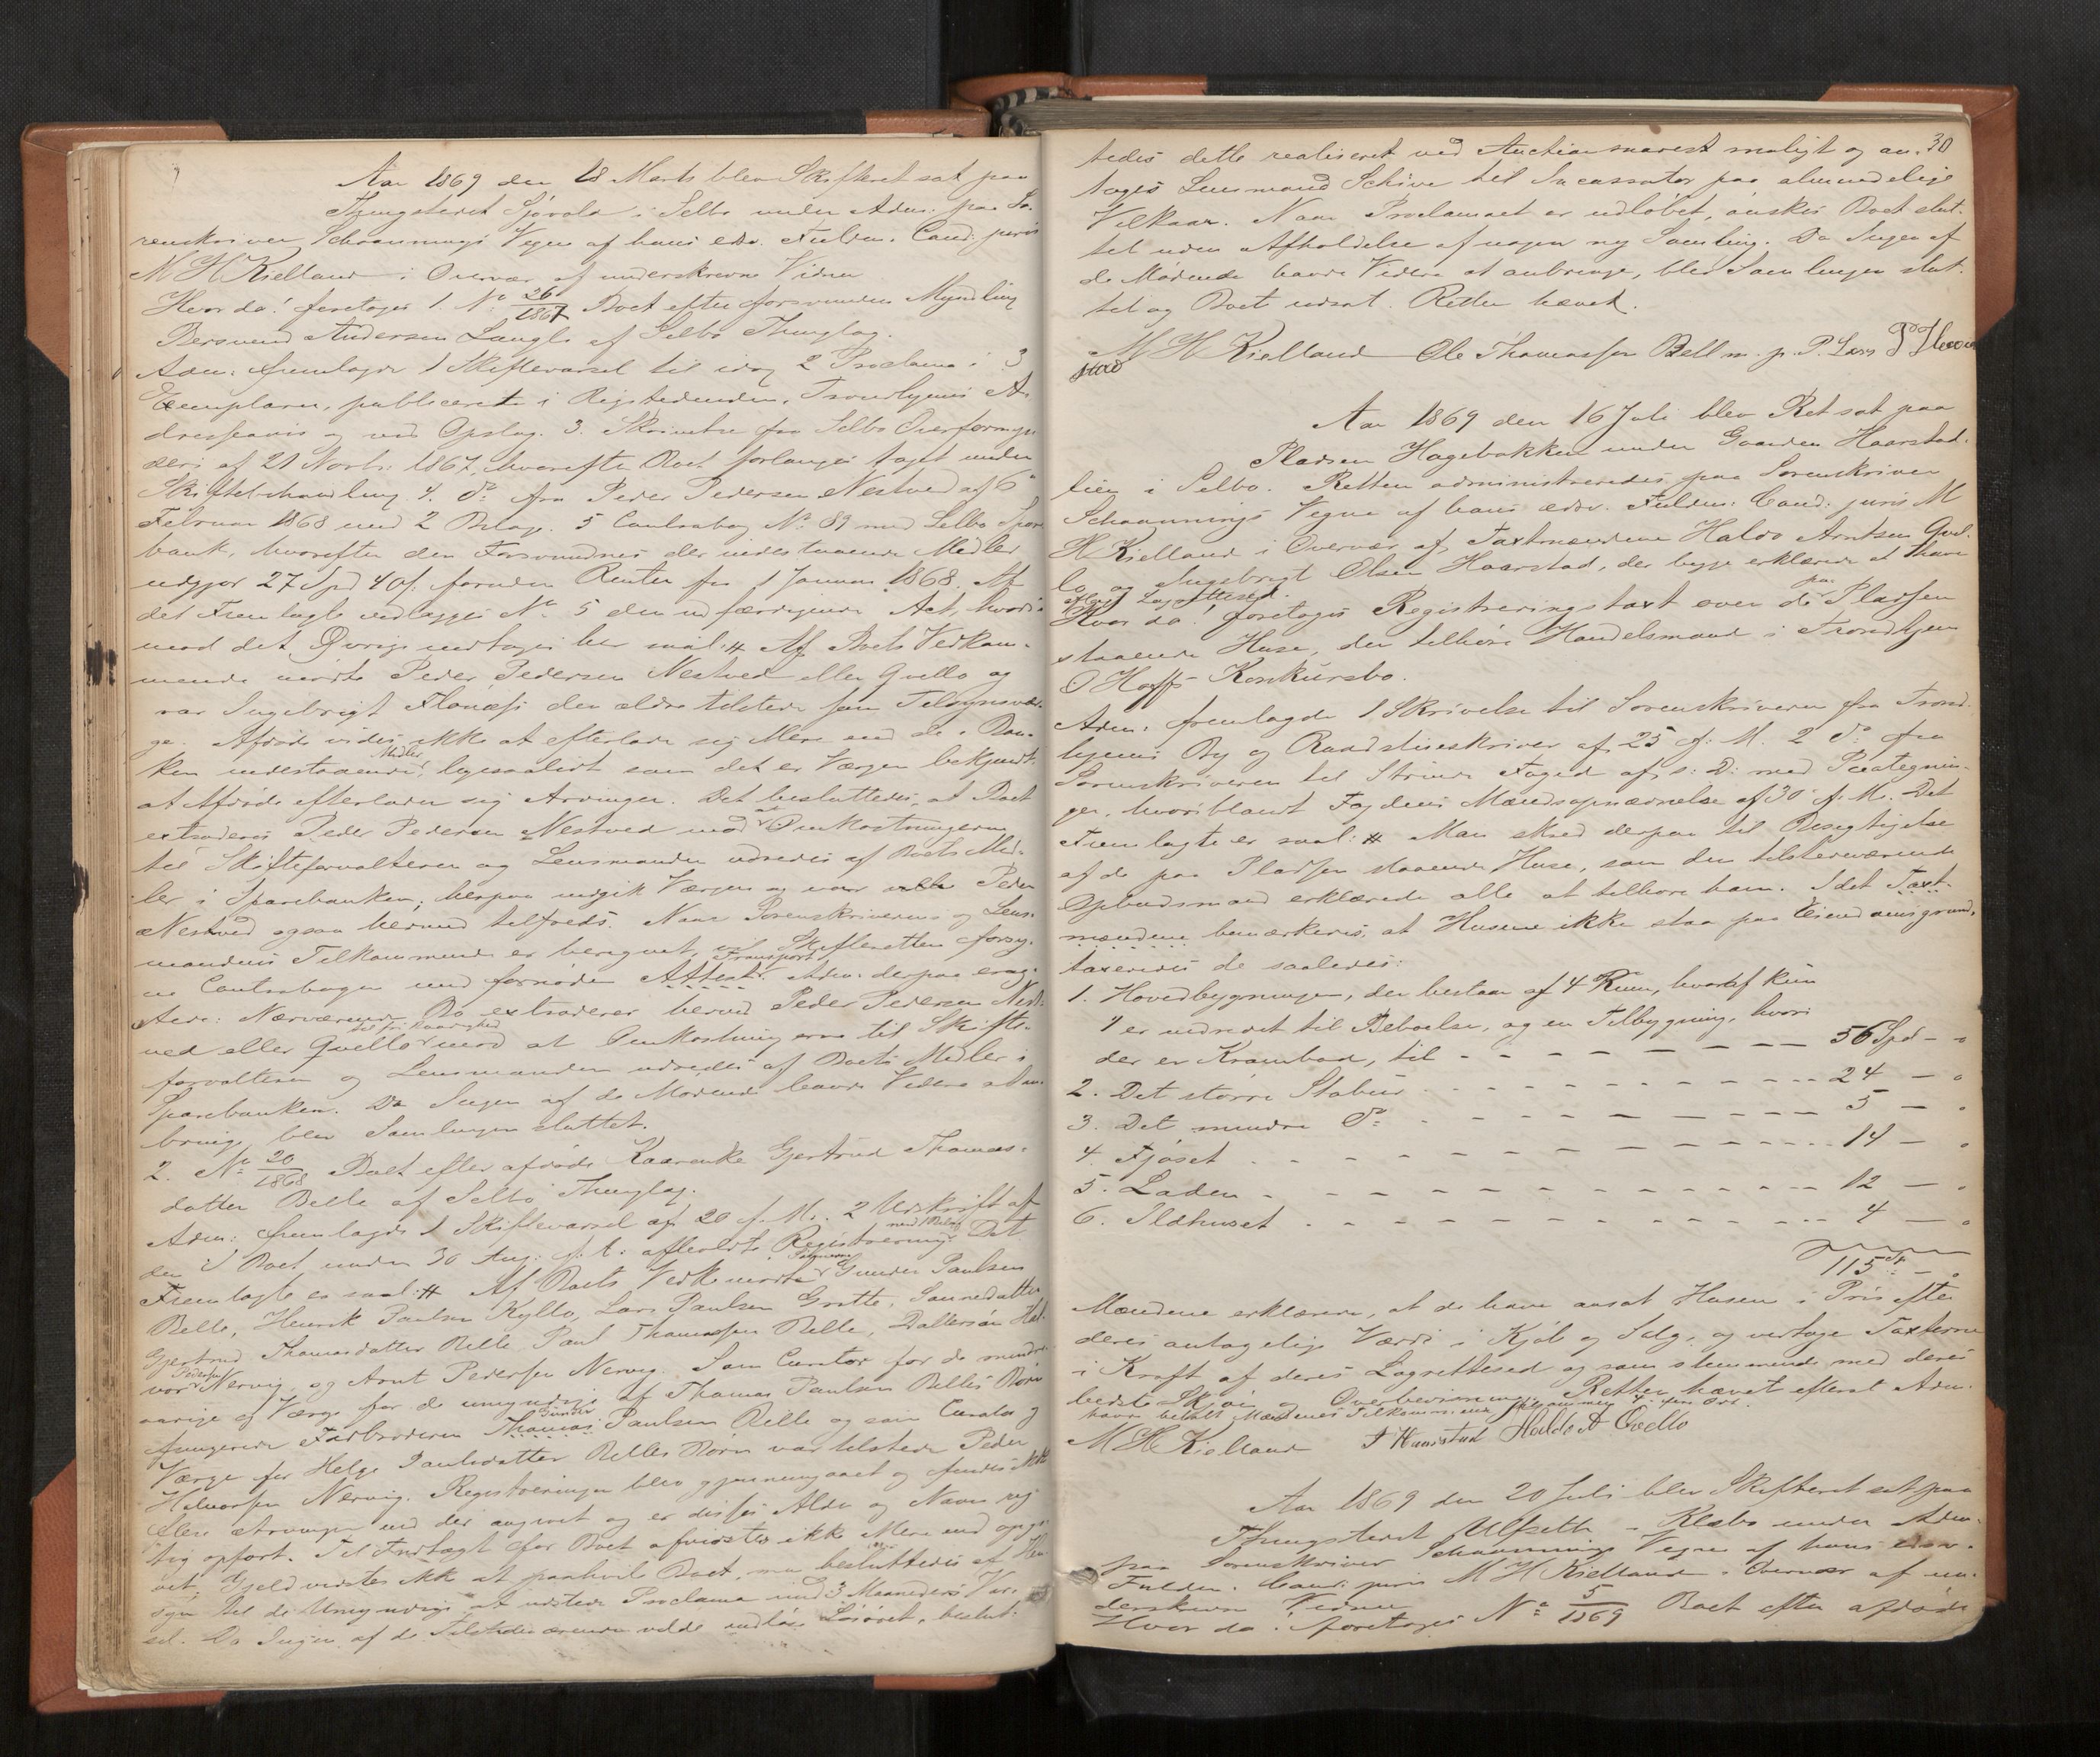 Aar 1869 den 18 Marts blev Skifteret sat paa
Thingstedet Sjøvold i Selbo under Adm: paa So-
renskriver Schaannings Vegne af hans edsv. Fuldm. Cand. juris
M H Kielland i Overvær af underskrevne Vidner
Hvor da! foretoges 1. No 26/1867 Boet efter forsvundne Myndling
Bersvend Andersen Langli af Selbo Thinglag.
Adm: fremlagde 1 Skiftevarsel til idag 2 Proclama i 3
Exemplarer, publicerede i Rigstidenden, Trondhjems A-
dresseavis og ved Opslag. 3. Skrivelse fra Selbo Overformyn
deri af 21 Novbr: 1867, hvorefter Boet forlanges taget under
Skiftebehandling. 4. Do fra Peder Pedersen Nestved af 6
Februar 1868 med 2 Bilag. 5 Contrabog No 89 med Selbo Spare
bank, hvorefter den Forsvundnes der indestaaende Midler
udgjør 27 Spd 40 s. foruden Renter fra 1 Januar 1868. Af
det Fremlagte vedlægges No 5 den udfærdigende Act, hvori-
mod det Øvrige indtages her saal: # Af Boets Vedkom-
mende mødte Peder Pedersen Nestved eller Qvello og
var Ingebrigt Flønæss den ældre tilstede som Tilsynsvær-
ge. Afdøde vides ikke at efterlade sig Mere end de i Ban-
Midler
ken indestaaende, ligesaalidt som det er Værgen bekjendt
at Afdøde efterlader sig Arvinger. Det besluttedes, at Boet
extraderes Peder Pedersen Nestved mod at Omkostningerne
til Skifteforvalteren og Lensmanden udredes af Boets Mid-
ler i Sparebanken; herpaa indgik Værgen og var Peder
Nestved ogsaa hermed tilfreds. Naar Sorenskriverens og Lens-
mandens Tilkommende er beregnet, vil Skifteretten forsy-
Transport
ne Contrabogen med fornøden Attest. Adm: derpaa erag-
tede: Nærværende Bo extraderes herved Peder Pedersen Nest-
til fri Raadighed
ved eller Qvello mod at Omkostningerne til Skifte-
forvalteren og Lensmanden udredes af Boets Midler i
Sparebanken. Da Ingen af de Mødende havde Videre at an-
bringe, blev Samlingen sluttet.
2. No 20/1868 Boet efter afdøde Kaarenke Gjertrud Thomas-
datter Belle af Selbo Thinglag.
Adm: fremlagde 1 Skiftevarsel af 20 f. M. 2 Udskrift af
med 1 Bilag
den i Boet under 30 Aug: f: A: afholdte Registrering. Det
Fremlagte er saal: # Af Boets Vedk: mødte Gunder Paulsen
Belle, Henrik Paulsen Kyllo, Lars Paulsen Grøtte, Sønnedatter
Gjertrud Thomasdatter Belle, Paul Thomassen Belle, Dattersøn Hal-
Pedersen
vor Nervig og Arnt Pedersen Nervig. Som Curator for de mindre-
aarige og Værge for de umyndige af Thomas Paulsen Belles Børn
Gunder
fungerede Farbroderen Thomas Paulsen Belle og som Curator og
Værge for Helge Paulsdatter Belles Børn var tilstede Peder
Halvorsen Nervig. Registreringen blev gjennemgaaet og fandtes ikke
flere Arvinger end der angivet og er disses Alder og Navn rig-
tig opført. Til Indtægt for Boet afvidstes ikke Mere end opgi-
vet. Gjeld vidstes ikke at paahvile Boet, men besluttedes af Hen-
syn til de Umyndige at udstede Proclama med 3 Maaneders Var-
sel. Da Ingen af de Tilstedeværende vilde indløse Løsøret, beslut-
30
tedes dette realiseret ved Auction snarest muligt og an-
toges Lensmand Schive til Incassator paa almindelige
Vilkaar. Naar Proclamaet er udløbet, ønskes Boet slut-
tet uden Afholdelse af nogen ny Samling. Da Ingen af
de Mødende havde Videre at anbringe, blev Samlingen slut-
tet og Boet udsat. Retten hævet.
M H Kielland Ole Thomassen Bell m. p. P.
stad
Aar 1869 den 16 Juli blev Ret sat paa
Pladsen Hagebakken under Gaarden Haarstad-
lien i Selbo. Retten administreredes paa Sorenskriver
Schaannings Vegne af hans edsv. Fuldm: Cand: juris M
H Kielland i Overvær af Taxtmændene Haldo Arntsen Qvel-
lo og Ingebrigt Olsen Haarstad, der begge erklærede at have
aflagt Lagrettesed.
Hvor da! foretoges Registreringstaxt over de paa Pladsen
staaende Huse, der tilhøre Handelsmand i Trondhjem
O Hoffs Konkursbo.
Adm: fremlagde 1 Skrivelse til Sorenskriveren fra Trond-
hjems By og Raadstueskriver af 25 f: M. 2 Do fra
Sorenskriveren til Strinde Fogderi af s: D: med Paategnin-
ger, hvoriblandt Fogdens Mændsopnævnelse af 30 f. M. Det
Fremlagte er saal: # Man skred derpaa til Besigtigelse
af de paa Pladsen staaende Huse, som den tilstedeværende
Opbudsmand erklærede alle at tilhøre ham. Idet Taxt-
mændene bemærkede, at Husene ikke staa paa Eiendomsgrund,
taxeredes de saaledes:
1. Hovedbygningen, der bestaar af 4 Rum, hvoraf kun
1 er indredet til Beboelse, og en Tilbygning, hvori
der er Krambod, til - - - - - - - 56 Spd - "
2. Det større Stabur - - - - - - - 24 - "
3. Det mindre Do - - - - - - - 5 - "
4. Fjøset - - - - - - - 14 - "
5. Laden - - - - - - - 12 - "
6. Ildhuset - - - - - - - 4 - "
115 Sp - "
Mændene erklærede, at de have ansat Husene i Pris efter
deres antagelige Værdi i Kjøb og Salg, og vedtoge Taxterne
i Kraft af deres Lagrettesed og som stemmende med deres
bedste Skjøn og Overbevisning. Retten hævet efterat Adm.
havde betalt Mændenes Tilkommende
M H Kielland I Haarstad Haldo A Qvello
Aar 1869 den 20 Juli blev Skifteret sat paa
Thingstedet Ulseth i Klæbo under Adm.
paa Sorenskriver Schaannings Vegne af hans edsv.
Fuldm. Cand: juris M H Kielland i Overvær af un-
derskrevne Vidner
Hvor da! foretoges No 5/1869 Boet efter afdøde